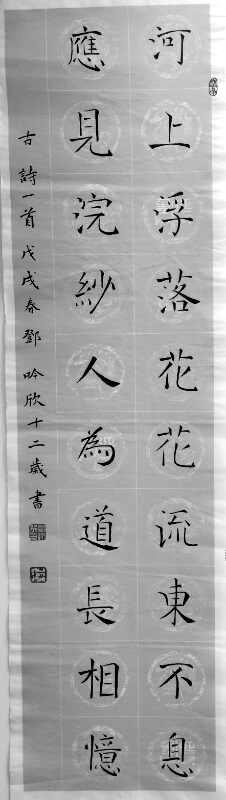 河上浮落花花流東不息
應見浣紗人為道長相憶
古詩一首戊戌春鄧吟欣十二歲書